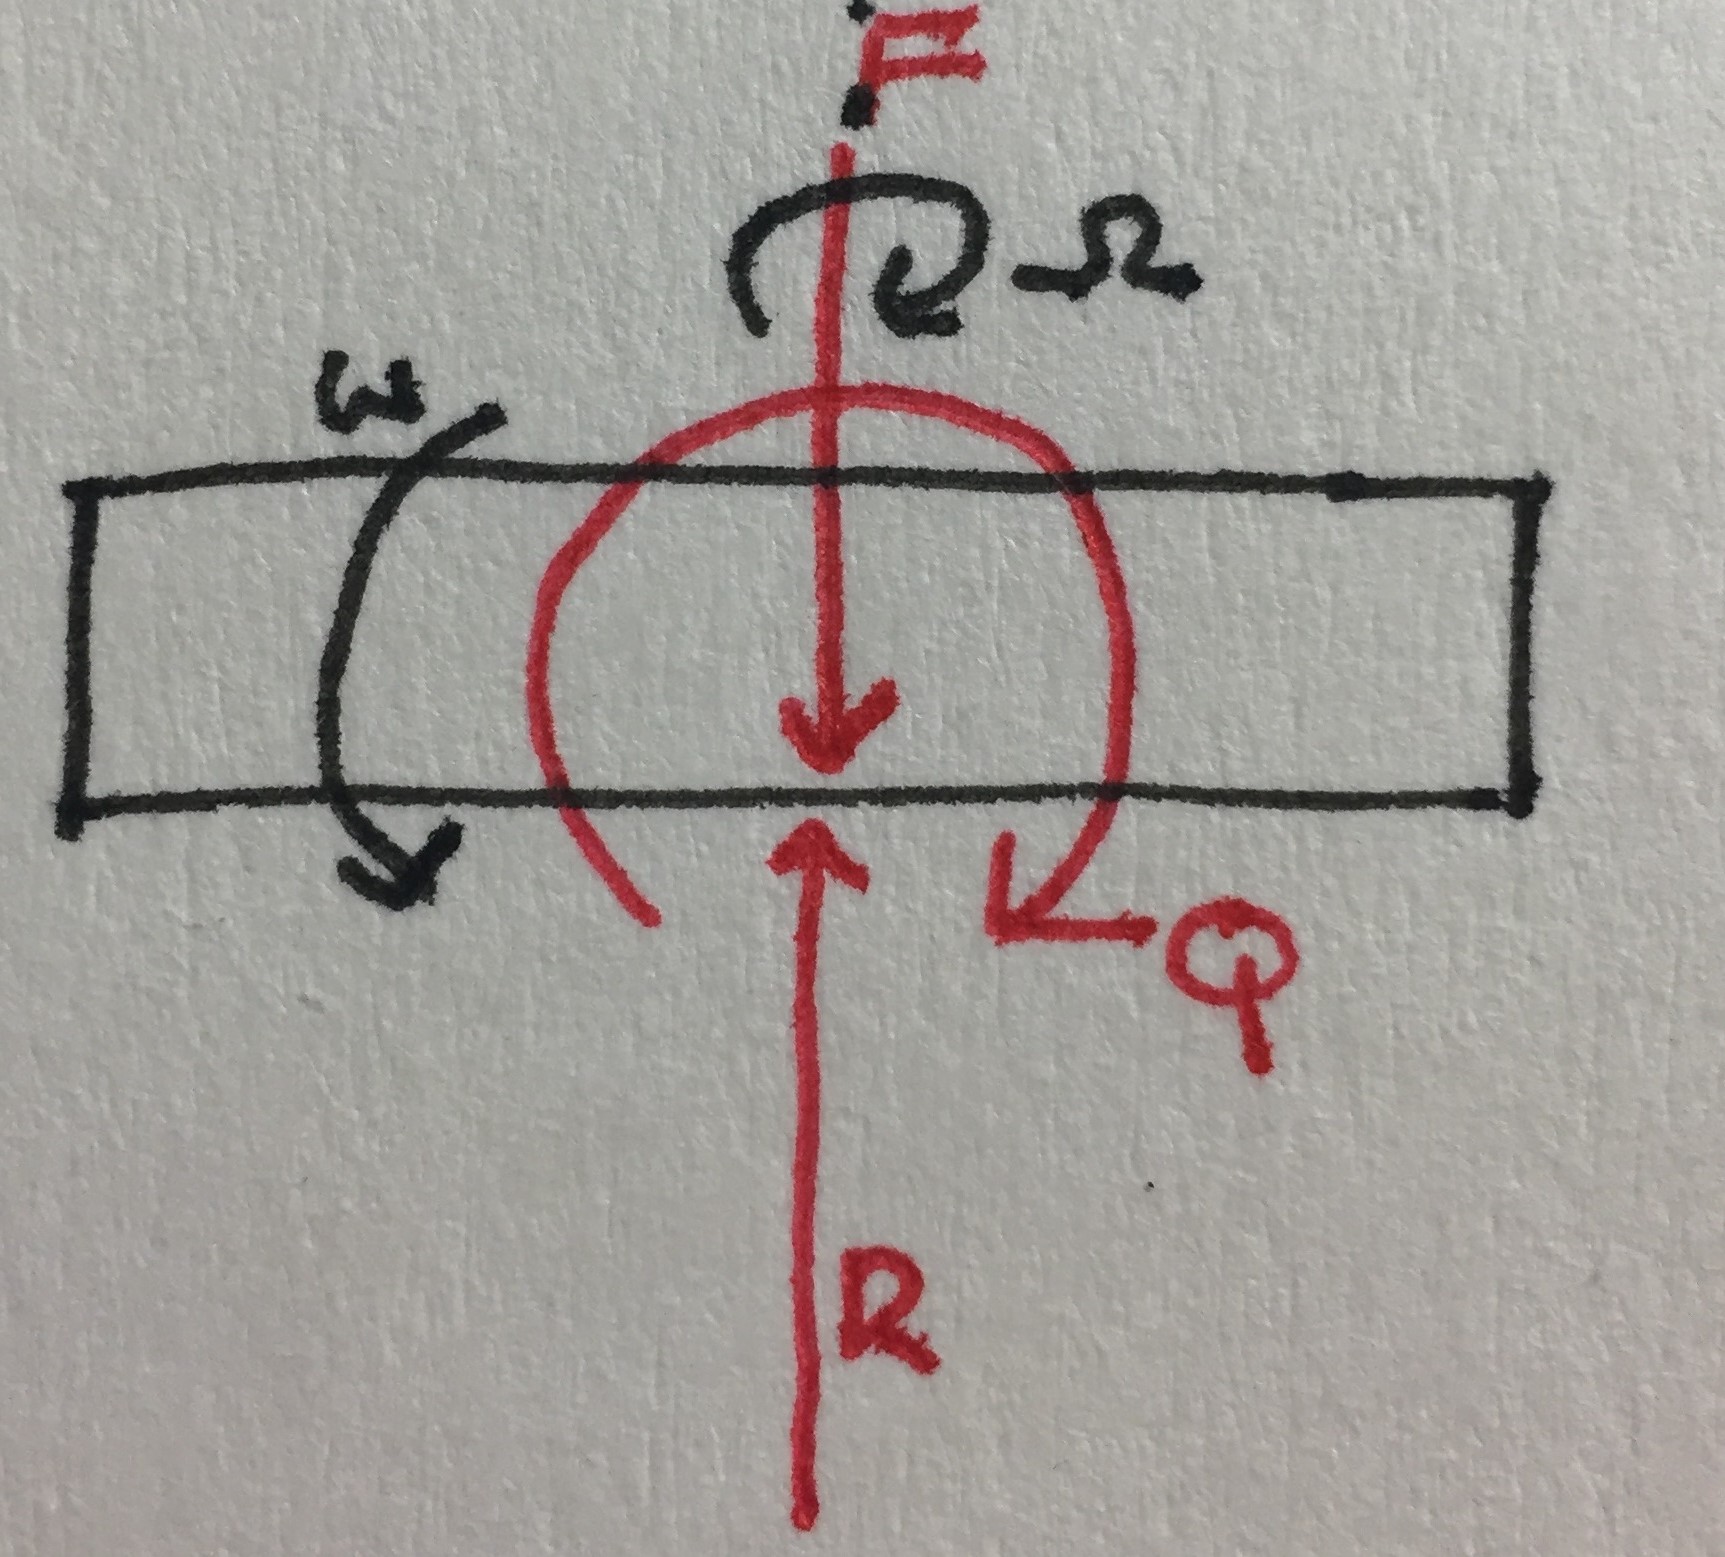 F
Ω
ω
Q
R